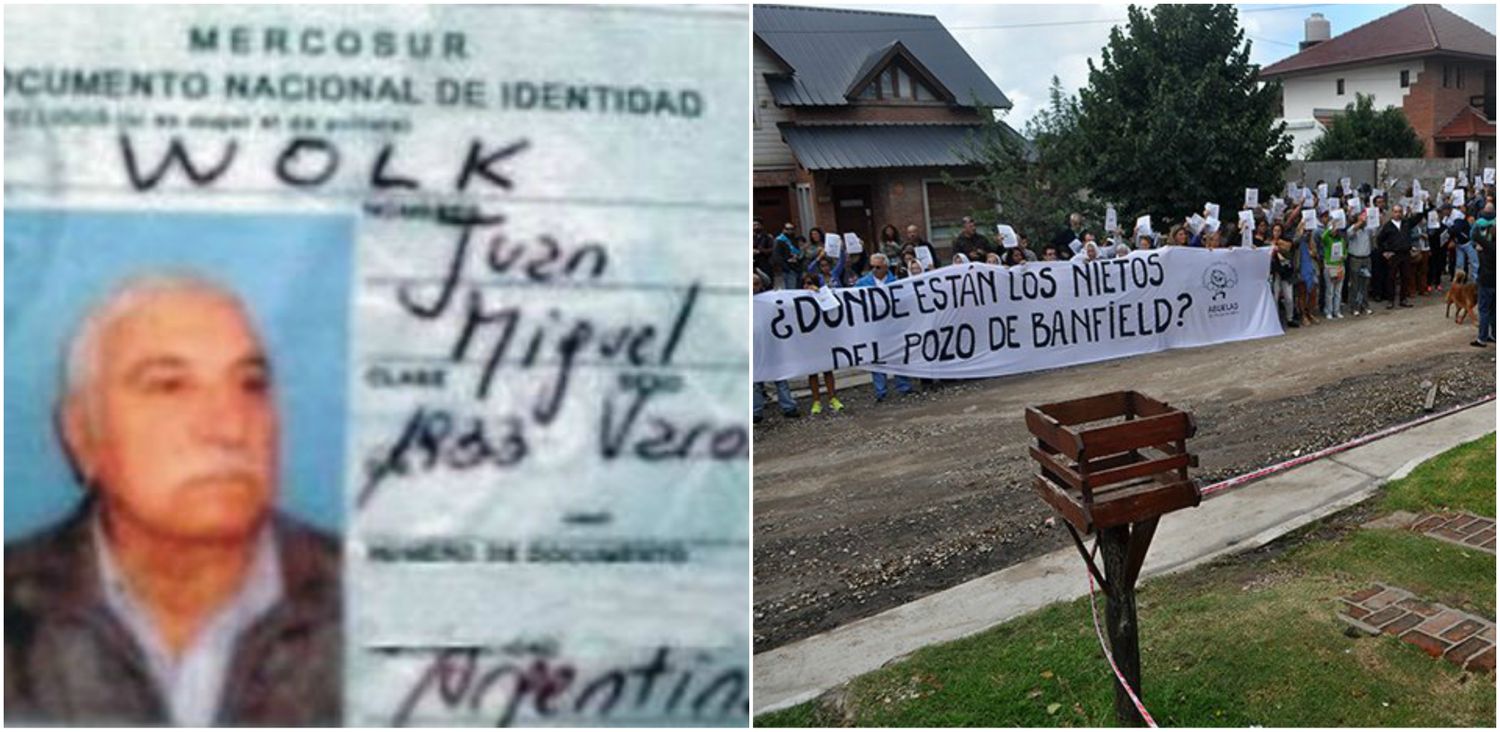 MERCOSUR
DOCUMENTO NACIONAL DE IDENTIDAD
WOLK
Juan
Miguel
CLASE SEXO
1933 Varo
NUMERO DE DOCUMENTO
Argentin
¿DONDE ESTÁN LOS NIETOS
DEL POZO DE BANFIELD?
ABUELAS